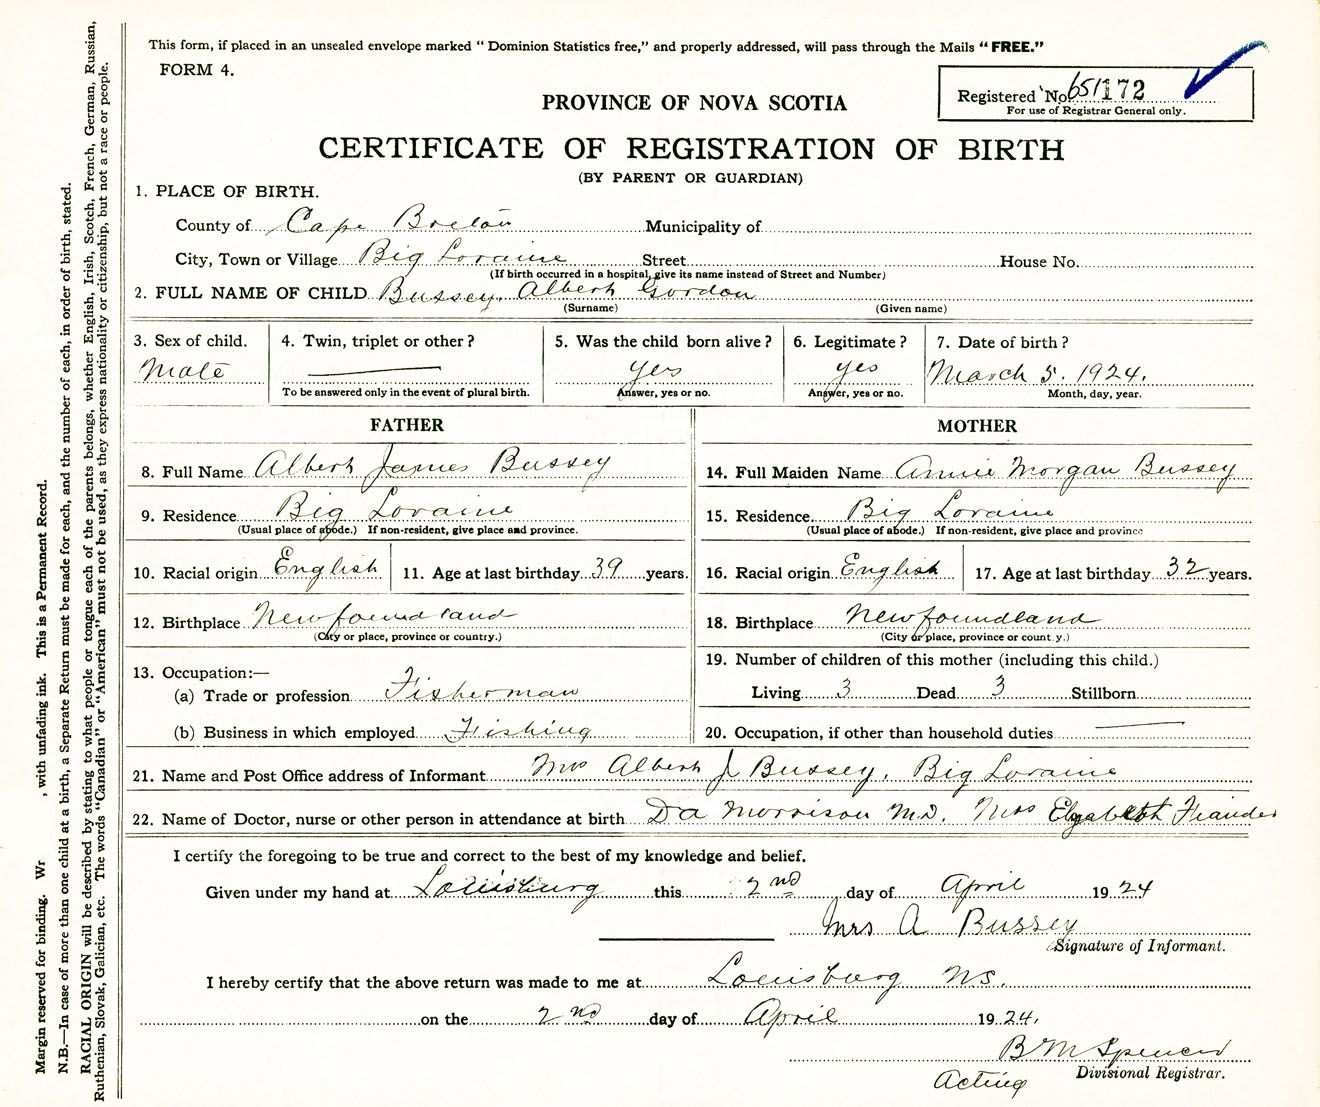 This form, if placed in an unsealed envelope marked "Dominion Statistics free," and properly addressed, will pass through the Mails "FREE."
FORM 4.
Registered No. 651172
For use of Registrar General only.
PROVINCE OF NOVA SCOTIA
CERTIFICATE OF REGISTRATION OF BIRTH
(BY PARENT OR GUARDIAN)
1. PLACE OF BIRTH.
County of Cape Breton Municipality of
City, Town or Village Big Loraine Street House No.
(If birth occurred in a hospital, give its name instead of Street and Number)
2. FULL NAME OF CHILD Bussey, Albert Gordon
(Surname) (Given name)
3. Sex of child. 4. Twin, triplet or other? 5. Was the child born alive? 6. Legitimate? 7. Date of birth?
Male yes yes March 5. 1924.
To be answered only in the event of plural birth. Answer, yes or no. Answer, yes or no. Month, day, year.
FATHER MOTHER
8. Full Name Albert James Bussey 14. Full Maiden Name Annie Morgan Bussey
9. Residence Big Loraine 15. Residence Big Loraine
(Usual place of abode.) If non-resident, give place and province. (Usual place of abode.) If non-resident, give place and province
10. Racial origin English 11. Age at last birthday 39 years. 16. Racial origin English 17. Age at last birthday 32 years.
12. Birthplace Newfoundland 18. Birthplace Newfoundland
(City or place, province or country.) (City or place, province or count.y.)
13. Occupation:— 19. Number of children of this mother (including this child.)
(a) Trade or profession Fisherman Living 3 Dead 3 Stillborn
(b) Business in which employed Fishing 20. Occupation, if other than household duties
21. Name and Post Office address of Informant Mrs Albert J Bussey, Big Loraine
22. Name of Doctor, nurse or other person in attendance at birth Da Morrison M.D. Mrs Elizabeth
I certify the foregoing to be true and correct to the best of my knowledge and belief.
Given under my hand at Louisburg this 2nd day of April 1924
Mrs A Bussey
Signature of Informant.
I hereby certify that the above return was made to me at Louisburg NS.
on the 2nd day of April 1924.
B M Spencer
Acting Divisional Registrar.
Margin reserved for binding. Wr , with unfading ink. This is a Permanent Record.
N.B.—In case of more than one child at a birth, a Separate Return must be made for each, and the number of each, in order of birth, stated.
RACIAL ORIGIN will be described by stating to what people or tongue each of the parents belongs, whether English, Irish, Scotch, French, German, Russian,
Ruthenian, Slovak, Galician, etc. The words "Canadian" or "American" must not be used, as they express nationality or citizenship, but not a race or people.